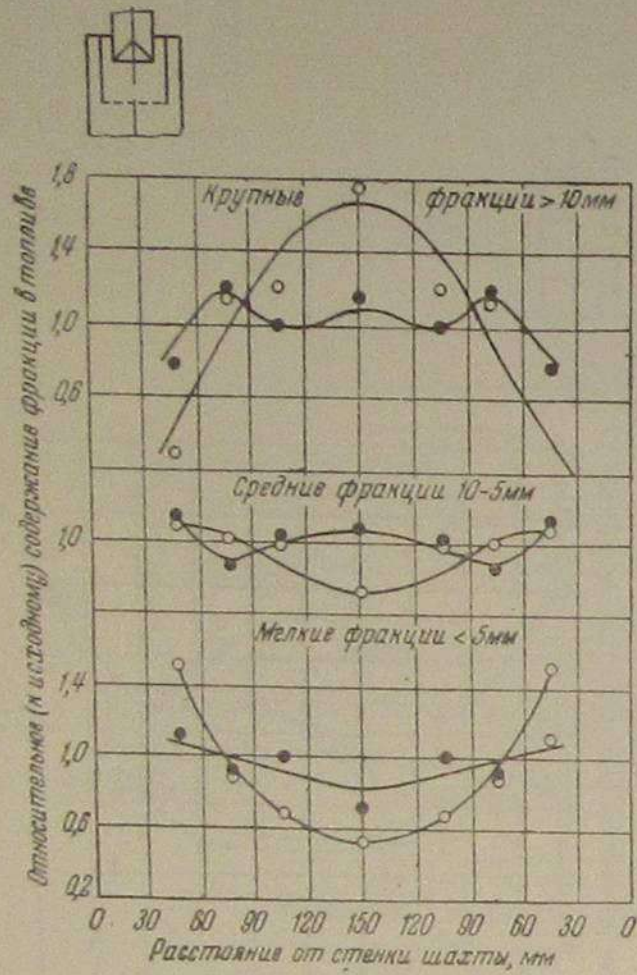 Относительное (к исходному) содержание фракции в топливе
1,8
Крупные фракции > 10мм
1,4
1,0
0,6
Средние фракции 10-5мм
1,0
Мелкие фракции < 5мм
1,4
1,0
0,6
0,2
0 30 60 90 120 150 120 90 60 30 0
Расстояние от стенки шахты, мм